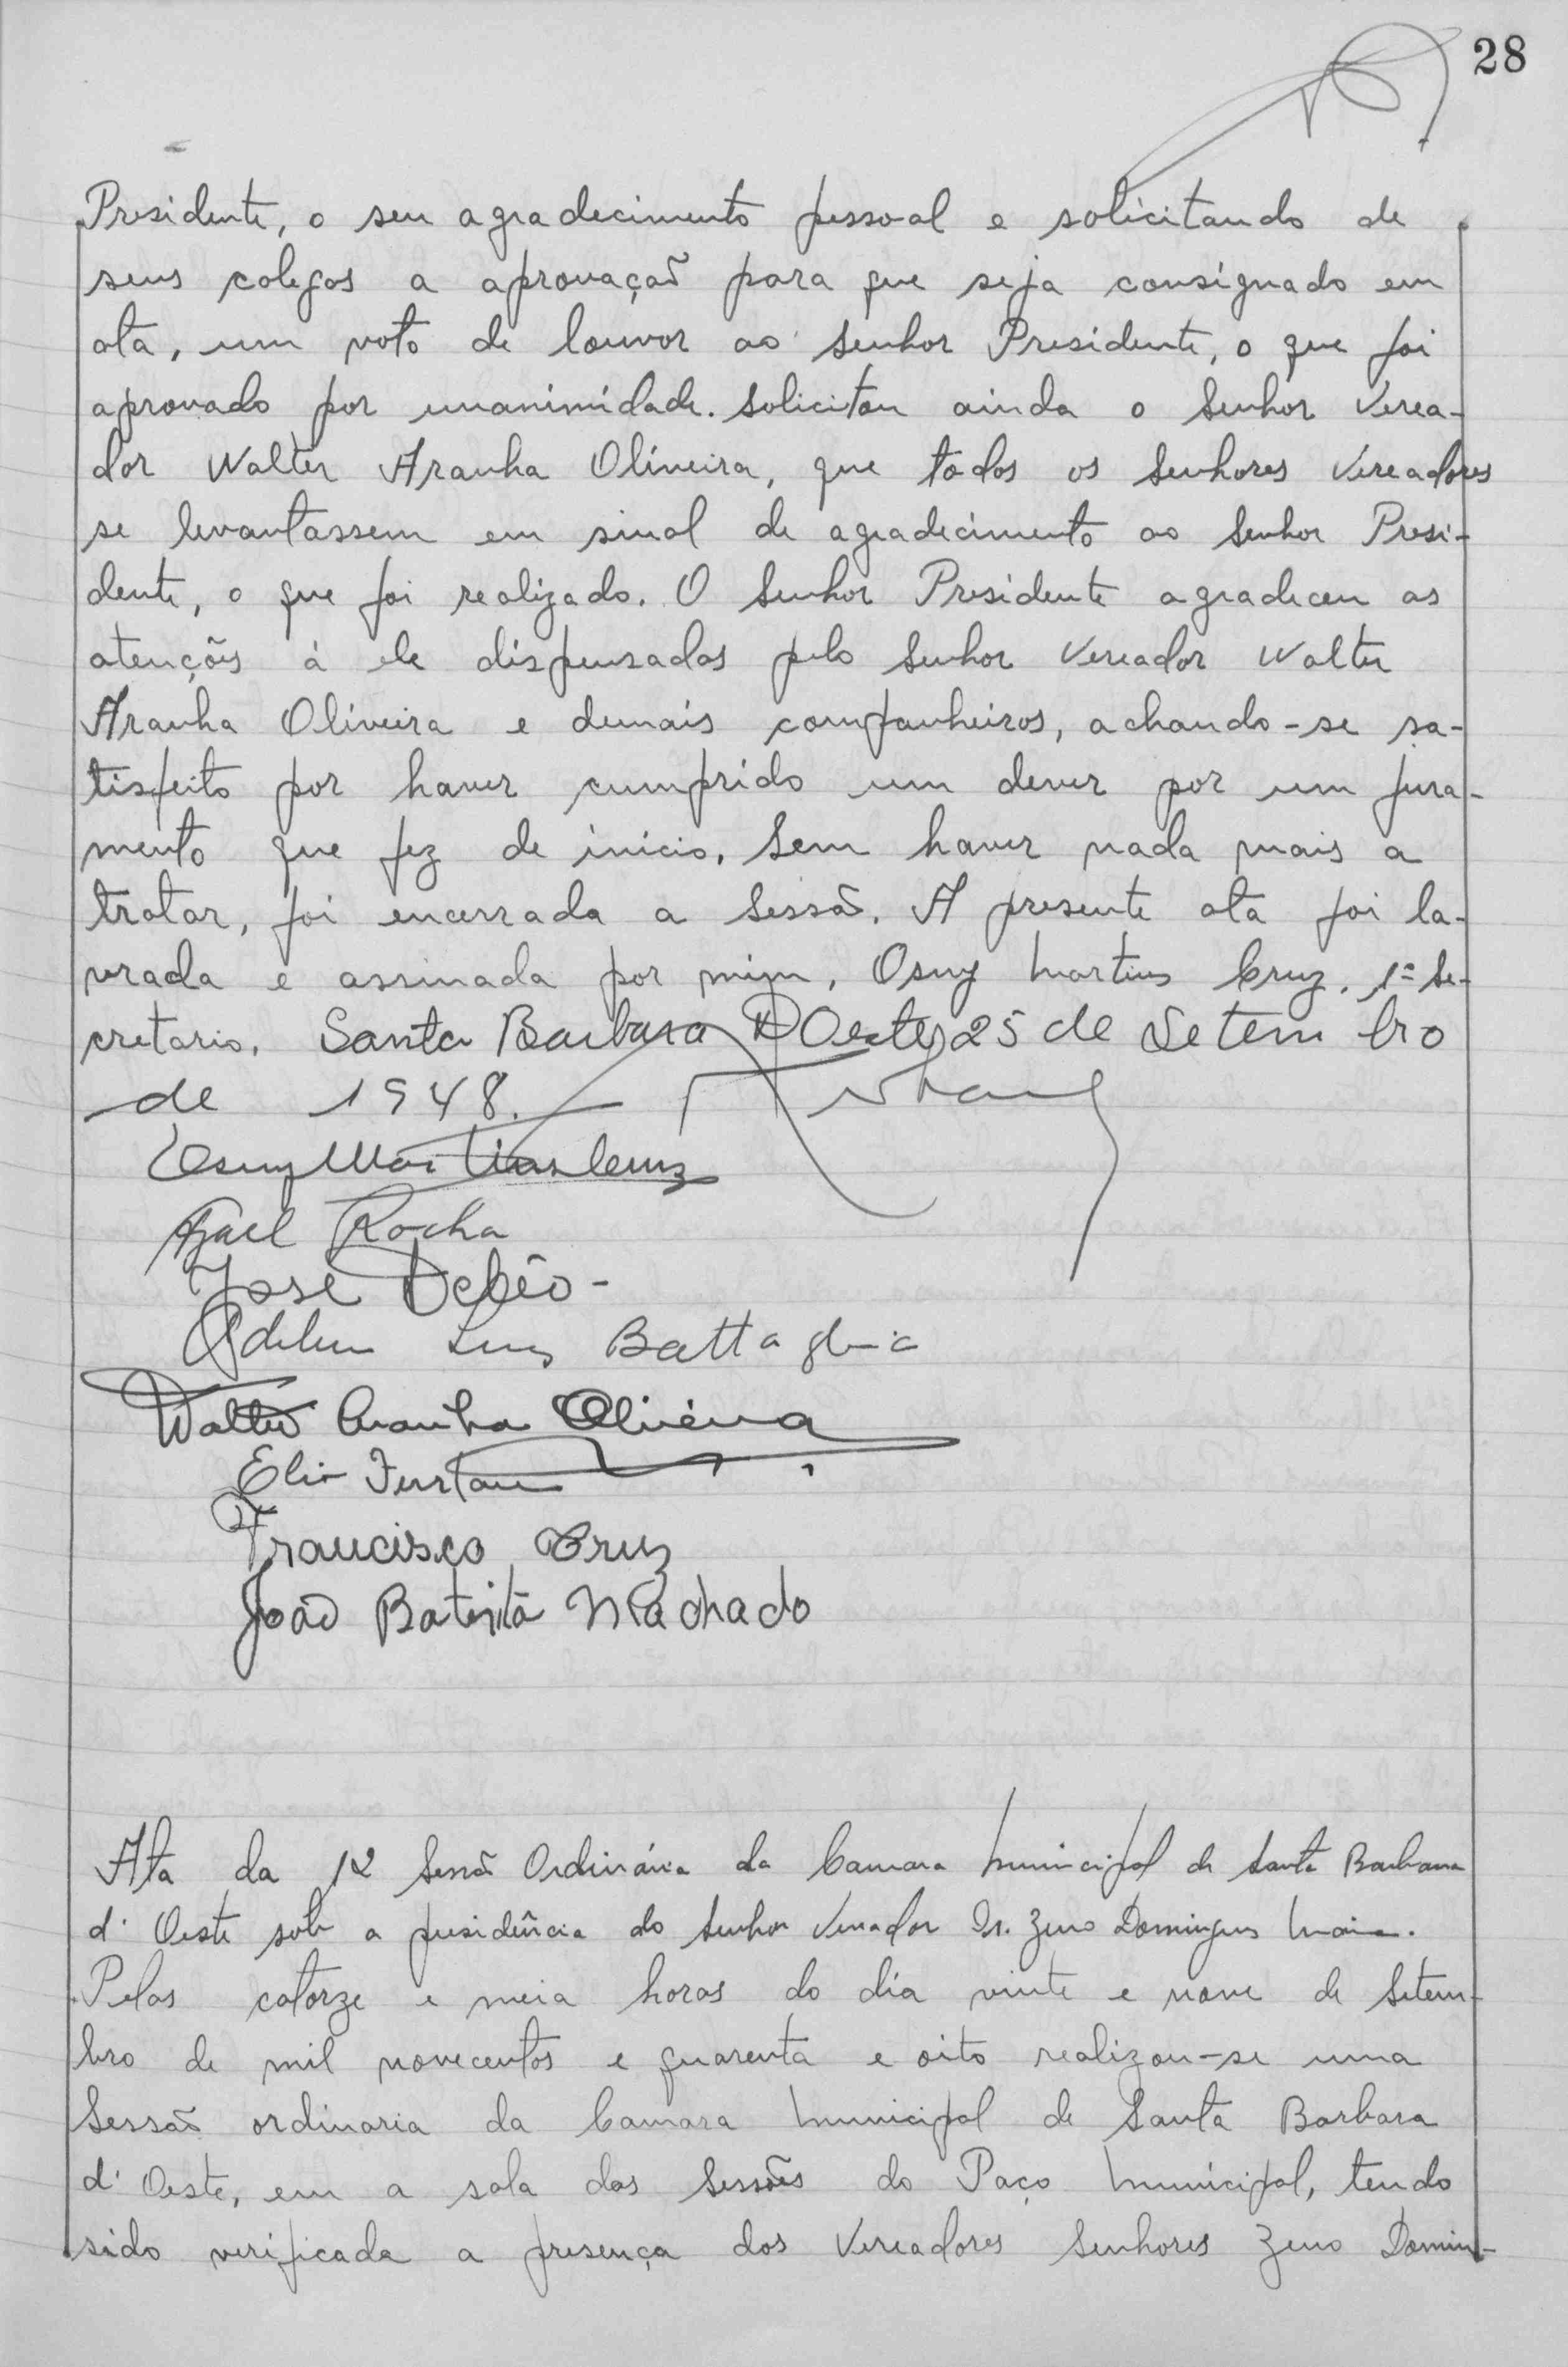 28
Presidente, o seu agradecimento pessoal e solicitando de
seus colegas a aprovação para que seja consignado em
ata, um voto de louvor ao Senhor Presidente, o que foi
aprovado por unanimidade. Solicitou ainda o Senhor Verea-
dor Walter Aranha Oliveira, que todos os Senhores Vereadores
se levantassem em sinal de agradecimento ao Senhor Presi-
dente, o que foi realizado. O Senhor Presidente agradeceu as
atenções á ele dispensadas pelo Senhor Vereador Walter
Aranha Oliveira e demais companheiros, achando-se sa-
tisfeito por haver cumprido um dever por um jura-
mento que fez de inicio. Sem haver nada mais a
tratar, foi encerrada a Sessão. A presente ata foi la-
vrada e assinada por mim, Osny Martins Cruz. 1º Se-
cretario. Santa Barbara D'Oeste, 25 de Setembro
de 1948.
Osny Martins Cruz
Rocha
José Debêo -
Luiz Battaglia
Walter Aranha Oliveira
Elio Furlan
Francisco Cruz
João Batista Machado
Ata da 12 Sessão Ordinária da Camara Municipal de Santa Barbara
d'Oeste sob a presidência do Senhor Vereador Dr. Zeno Domingues Maia.
Pelas catorze e meia horas do dia vinte e nove de Setem-
bro de mil novecentos e quarenta e oito realizou-se uma
Sessão ordinaria da Camara Municipal de Santa Barbara
d'Oeste, em a sala das Sessões do Paço Municipal, tendo
sido verificada a presença dos Vereadores Senhores Zeno Domin-